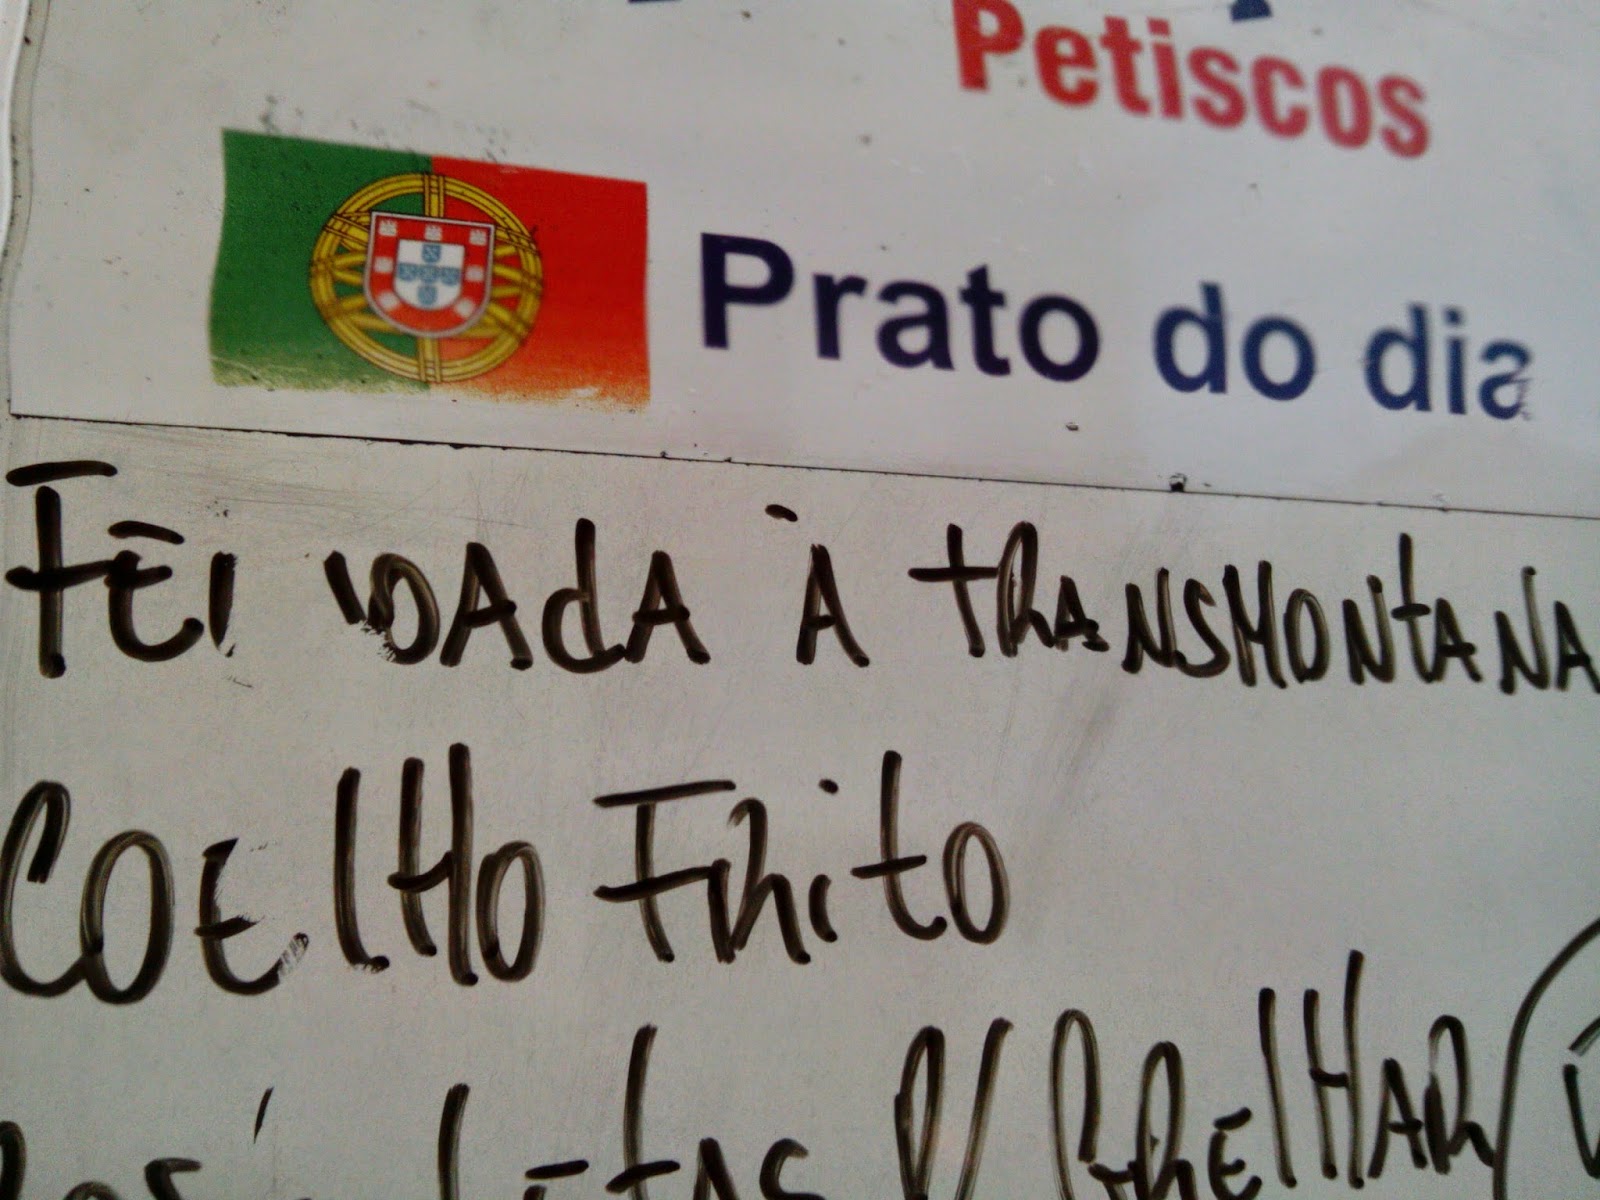 Petiscos
Prato do dia
FEIJOADA À TRANSMONTANA
COELHO FRITO
P/ GRELHAR